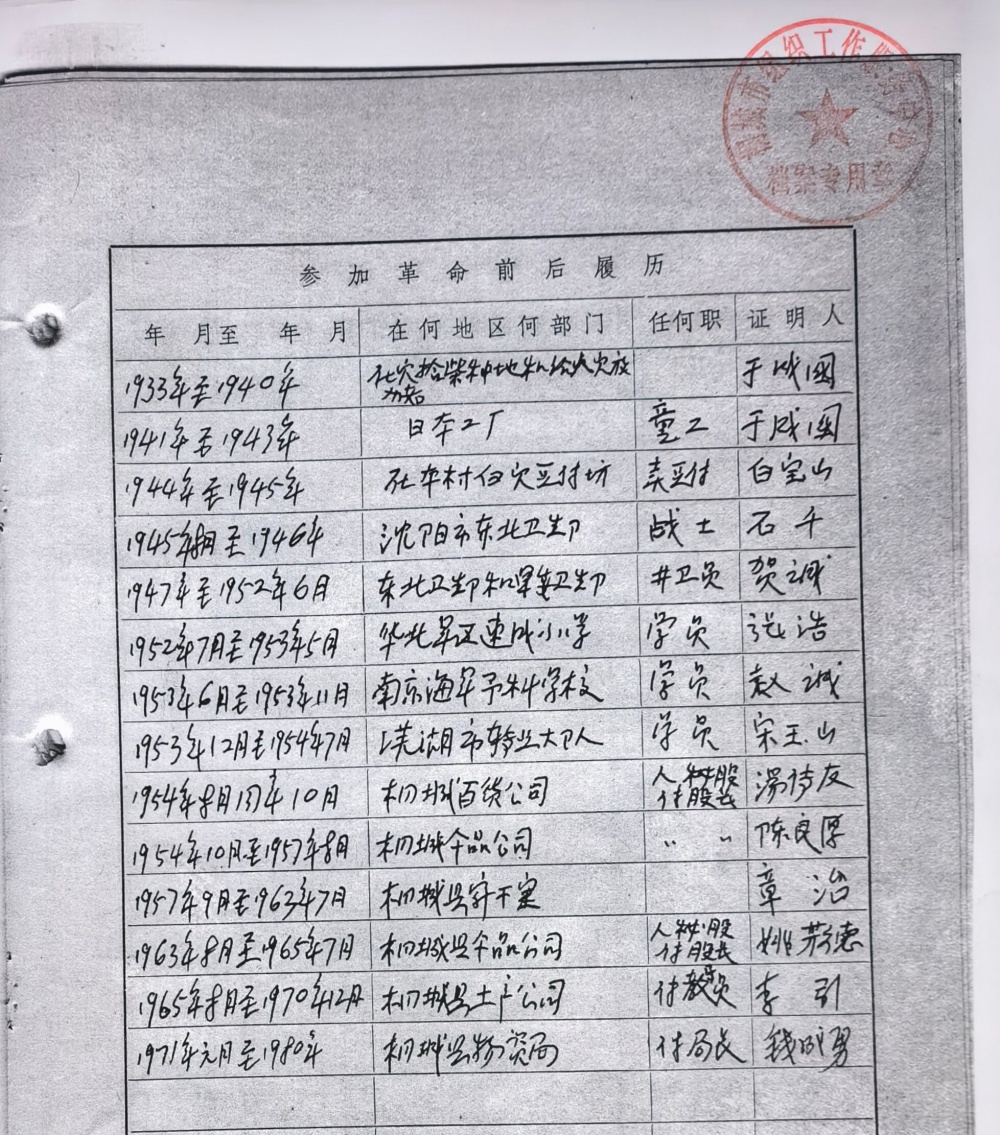 市组织工作
档案专用章
参加革命前后履历
年 月至 年 月 在何地区何部门 任何职 证明人
1933年至1940年 在家拾柴种地和给人家放 于成国
1941年至1943年 日本工厂 童工 于成国
1944年至1945年 在本村白家豆付坊 卖豆付 白宝山
1945年8月至1946年 沈阳市东北卫生部 战士 石千
1947年至1952年6月 东北卫生部和军委卫生部 卫员 贺诚
1952年7月至1953年5月 华北军区速成小学 学员 张浩
1953年6月至1953年11月 南京海军予科学校 学员 赵诚
1953年12月至1954年7月 芜湖市转业大队 学员 宋玉山
1954年8月到年10月 桐城百货公司 人秘股付股长 汤传友
1954年10月至1957年8月 桐城食品公司 〃 〃 陈良厚
1957年9月至1963年7月 桐城县 章治
1963年8月至1965年7月 桐城县食品公司 人秘股付股长 姚芳德
1965年8月至1970年12月 桐城县土产公司 付教导员 李引
1971年元月至1980年 桐城县物资局 付局长 钱成勇